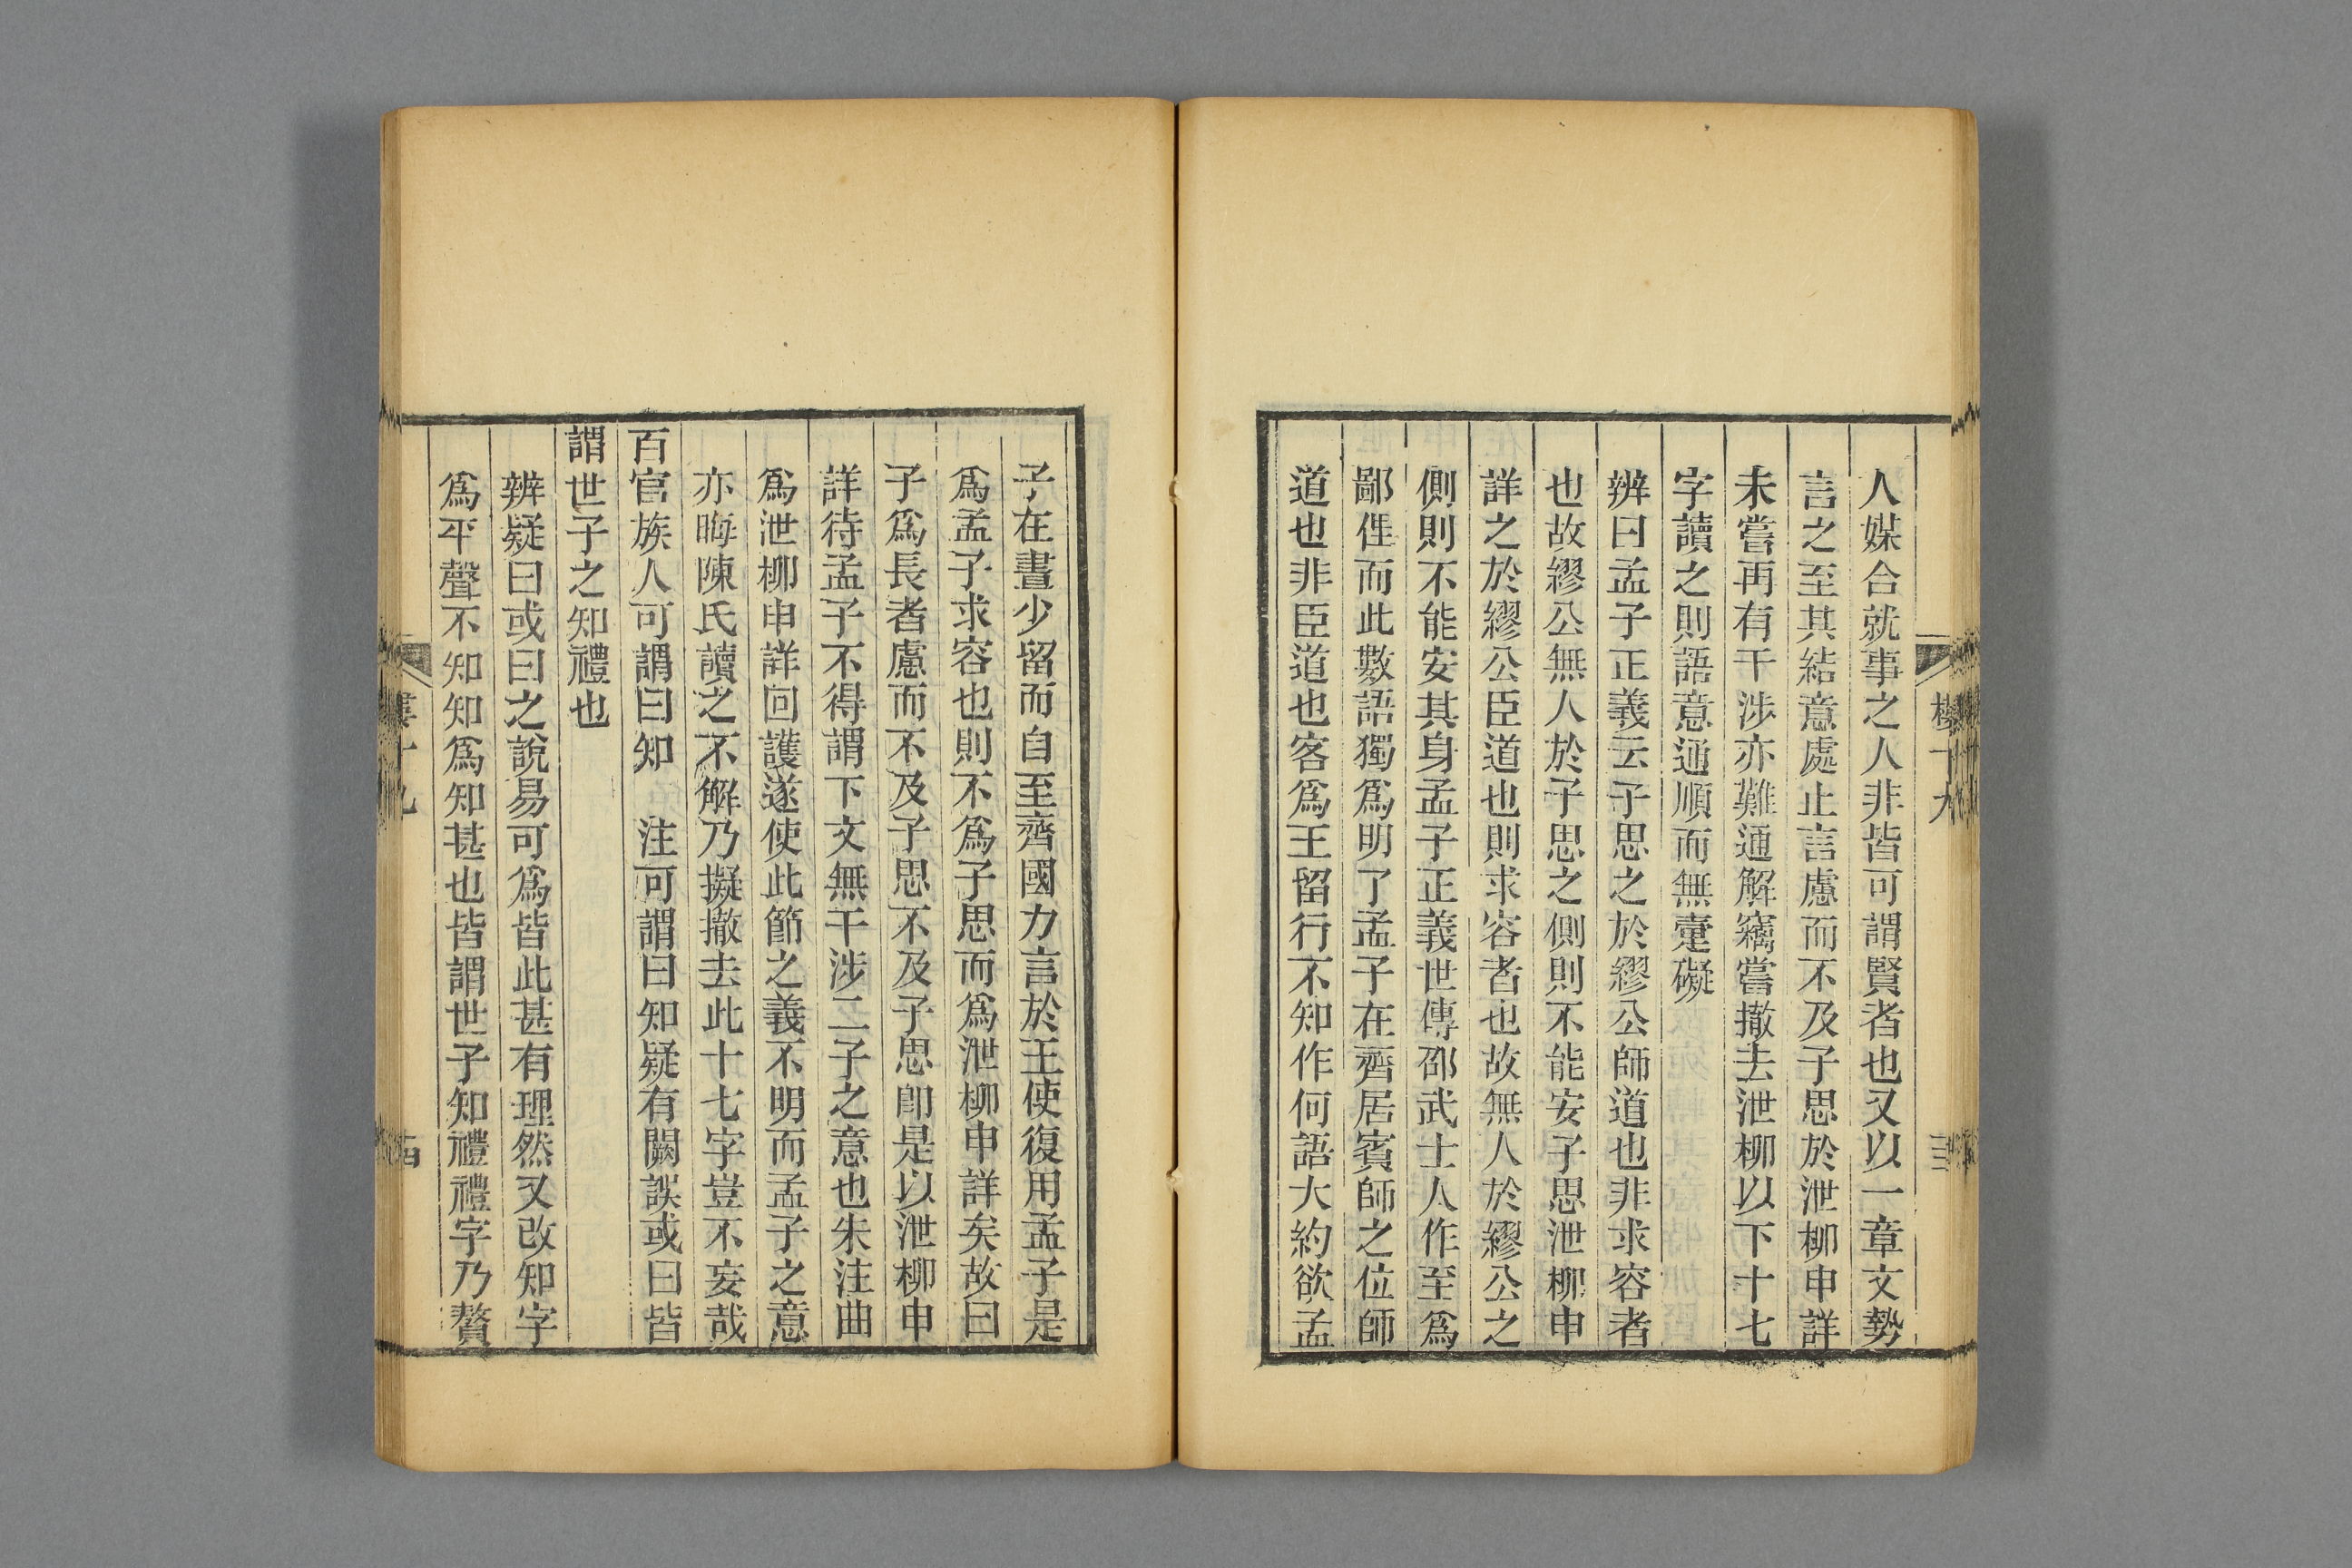 人媒合就事之人非皆可謂賢者也又以一章文勢
言之至其結意處止言慮而不及子思於泄柳申詳
未嘗再有干涉亦難通解竊嘗撤去泄柳以下十七
字讀之則語意通順而無疐礙
辨曰孟子正義云子思之於繆公師道也非求容者
也故繆公無人於子思之側則不能安子思泄柳申
詳之於繆公臣道也則求容者也故無人於繆公之
側則不能安其身孟子正義世傳邵武士人作至爲
鄙俚而此數語獨爲明了孟子在齊居賓師之位師
道也非臣道也客爲王留行不知作何語大約欲孟
子在晝少留而自至齊國力言於王使復用孟子是
爲孟子求容也則不爲子思而爲泄柳申詳矣故曰
子爲長者慮而不及子思不及子思卽是以泄柳申
詳待孟子不得謂下文無干涉二子之意也朱注曲
爲泄柳申詳回護遂使此節之義不明而孟子之意
亦晦陳氏讀之不解乃擬撤去此十七字豈不妄哉
百官族人可謂曰知 注可謂曰知疑有闕誤或曰皆
謂世子之知禮也
辨疑曰或曰之說易可爲皆此甚有理然又改知字
爲平聲不知知爲知甚也皆謂世子知禮禮字乃贅
十九